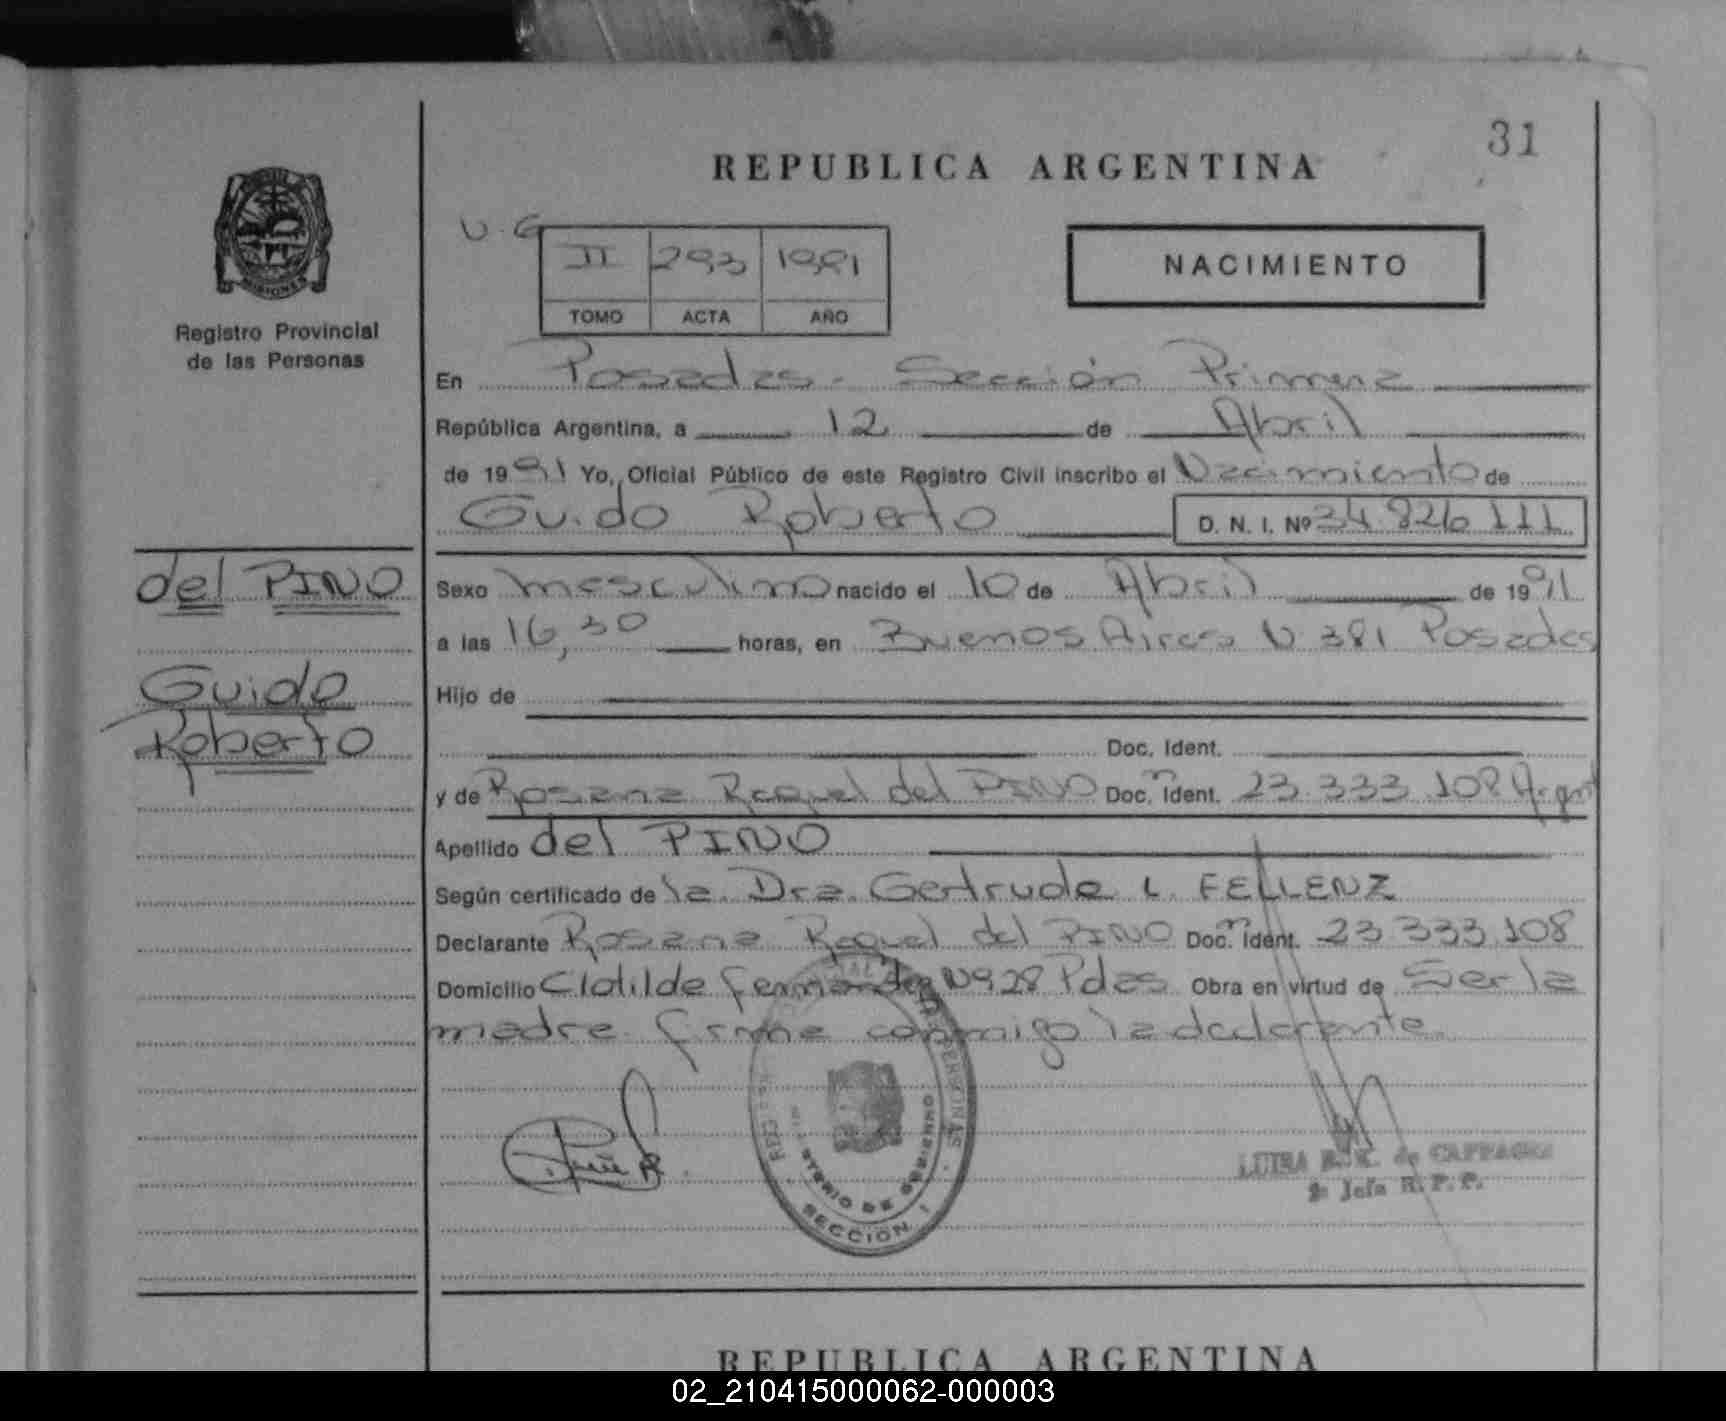 31
REPUBLICA ARGENTINA
MISIONES
Registro Provincial
de las Personas
U.G
II 293 1991
TOMO ACTA AÑO
NACIMIENTO
En Posadas - Sección Primera
República Argentina, a 12 de Abril
de 1991 Yo, Oficial Público de este Registro Civil inscribo el Nacimiento de
Guido Roberto D. N. I. Nº 34.826.111
del PINO
Guido
Roberto
Sexo masculino nacido el 10 de Abril de 1991
a las 16,30 horas, en Buenos Aires N 381 Posadas
Hijo de
Doc. Ident.
y de Rosana Raquel del PINO Doc. Ident. 23.333.108 Argent
Apellido del PINO
Según certificado de la Dra. Gertrude L. FELLENZ
Declarante Rosana Raquel del PINO Doc. Ident. 23.333.108
Domicilio Clotilde Fernandez Nº 28 Pdas Obra en virtud de Ser la
madre. firma conmigo la declarante.
PERSONAS
MINISTERIO DE GOBIERNO
SECCION 1
LUISA de
2ª Jefa R. P. P.
REPUBLICA ARGENTINA
02_210415000062-000003